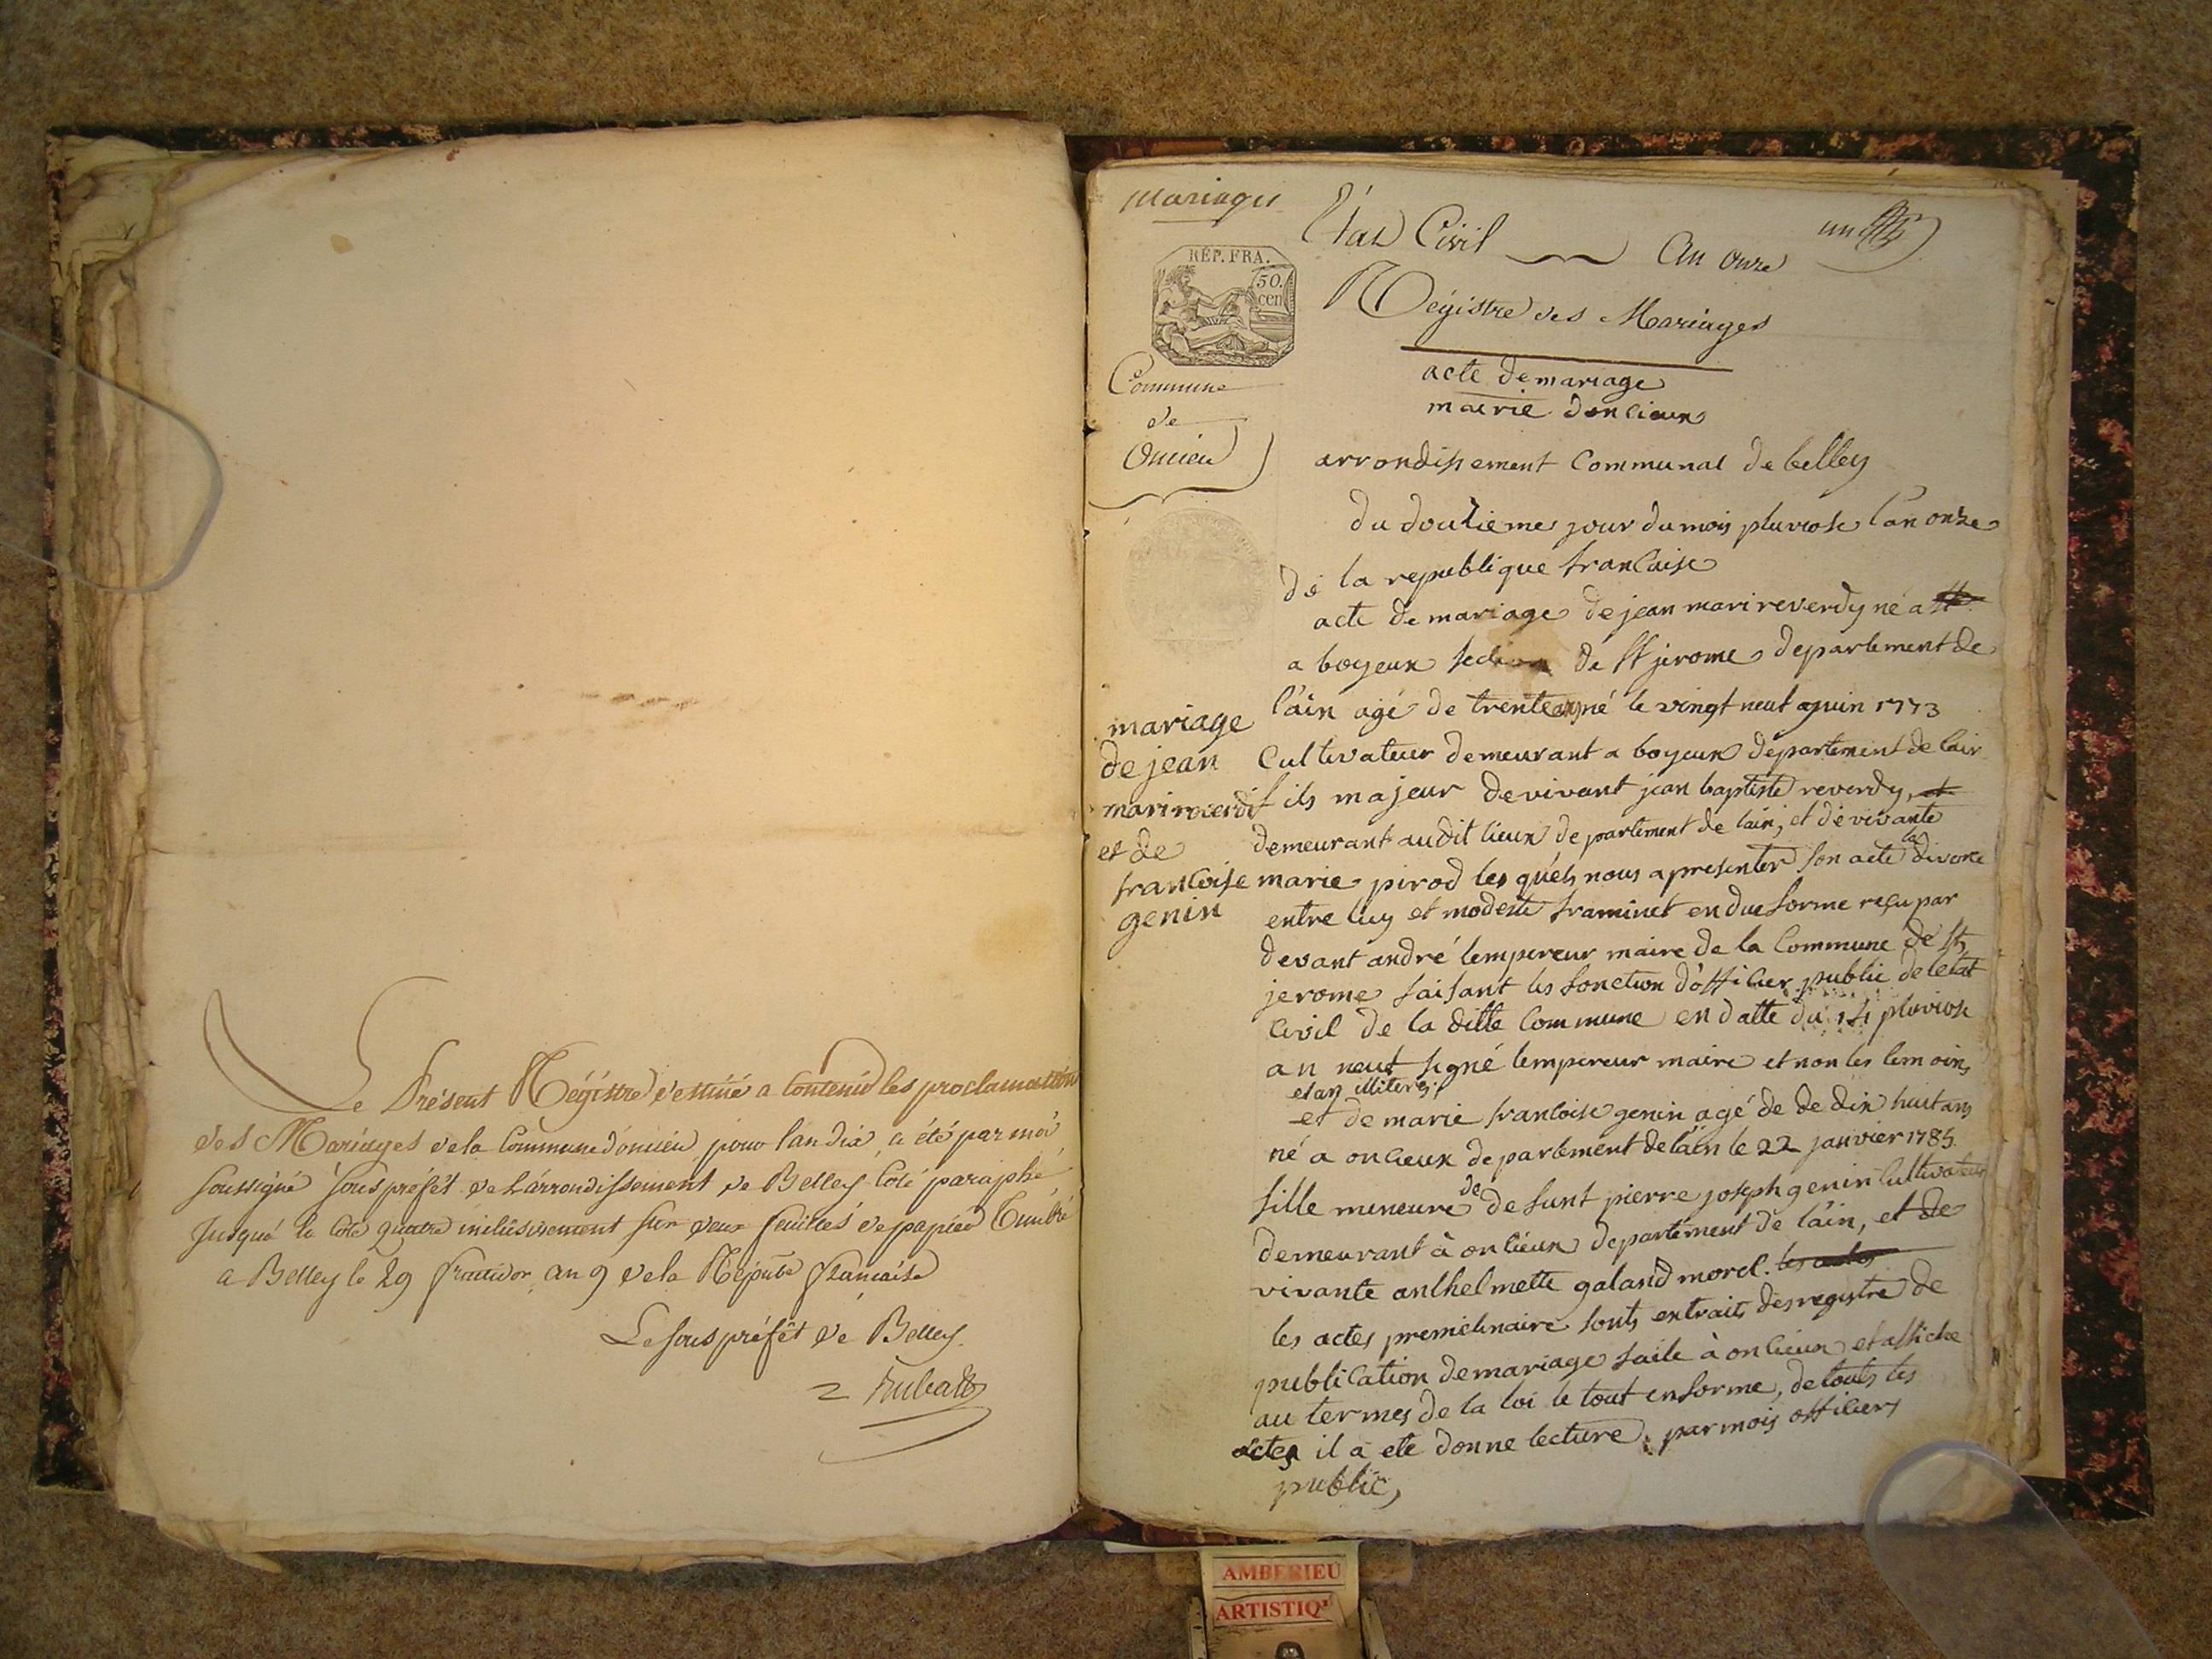 Le Présent Régistre destiné a Contenir les proclamations
des Mariages de la Commune d'oncieu pour l'an dix, a été par moi
soussigné sous préfét de L'arrondissement de Belley Coté paraphé
Jusqu'à la Cote quatre inclusivement sur deux feuilles de papier Timbré
a Belley le 29 fructidor an 9 de la Répube française
Le sous préfét de Belley.
mariages
Etat Civil An onze
un
REP. FRA.
50.
cen
Régistre des Mariages
Commune
de
Oncieu
acte de mariage
mairie donlieux
arrondissement Communal de belley
du douzieme jour du mois pluviose l'an onze
de la republique franCaise
acte de mariage de jean mari reverdy né a st
a boyeux section de st jerome departement de
l'ain agé de trente ans né le vingt neuf ajuin 1773
Cultivateur demeurant a boyeux departement de lain
fils majeur de vivant jean baptiste reverdy, et
demeurant audit lieux departement de lain, et de vivante
marie pirod les quels nous a presenter son acte la divorce
entre luy et modeste framinet en due forme reçu par
devant andré lempereur maire de la Commune de st
jerome faisant les fonction d'officier public de letat
Civil de la ditte Commune en datte du 14 pluviose
an neuf signé lempereur maire et non les temoins
etan illiteres
et de marie francoise genin agé de de dix huit ans
né a onlieux departement de lain le 22 janvier 1785
fille meneure de de funt pierre joseph genin Cultivateur
demeurant à onlieux departement de l'ain, et de
vivante anthelmette galand morel. les actes
les actes premielinaire sonts extraits des registre de
publication de mariage faite à onlieux et affiche
au termes de la loi le tout en forme, de touts les
actes il a ete donne lecture, par mois officiers
public,
mariage
de jean
mari reverdi
et de
francoise
genin
AMBERIEU
ARTISTIQ